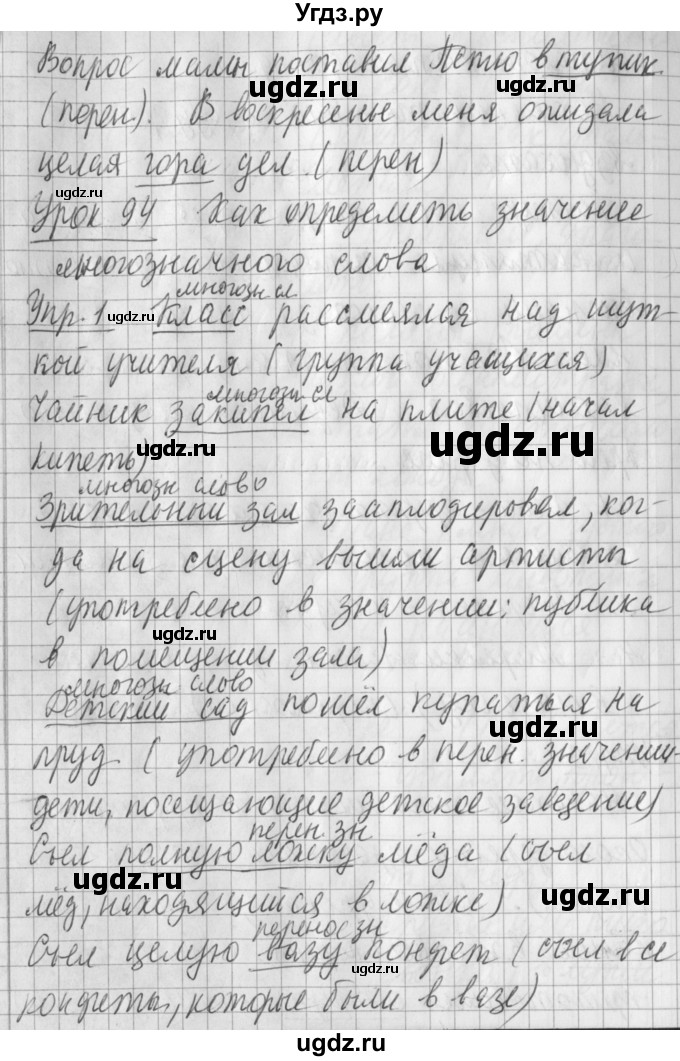 Угдз.ру
Вопрос мамы поставил Петю в тупик
(перен.). В воскресенье меня ожидала
целая гора дел. (перен)
Урок 94 Как определить значение
многозначного слова
многозн сл
Упр. 1 Класс рассмеялся над шут-
кой учителя (группа учащихся)
многозн сл
Чайник закипел на плите (начал
кипеть)
многозн слово
Зрительный зал зааплодировал, ког-
да на сцену вышли артисты
(употреблено в значении: публика
в помещении зала)
многозн слово
Детский сад пошёл купаться на
пруд. (употреблено в перен. значении-
дети, посещающие детское заведение)
перен. зн
Съел полную ложку мёда (съел
мёд, находящийся в ложке).
перенос зн
Съел целую вазу конфет (съел все
конфеты, которые были в вазе)
ugdz.ru